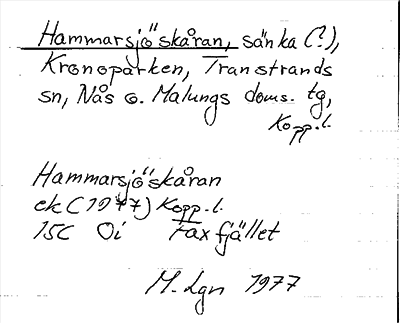 Hammarsjöskåran, sänka (?),
Kronoparken, Transtrands
sn, Nås o. Malungs doms. tg,
Kopp. l.
Hammarsjöskåran
ek (1977) Kopp. l.
15C Oi Faxfjället
M. Lgn 1977